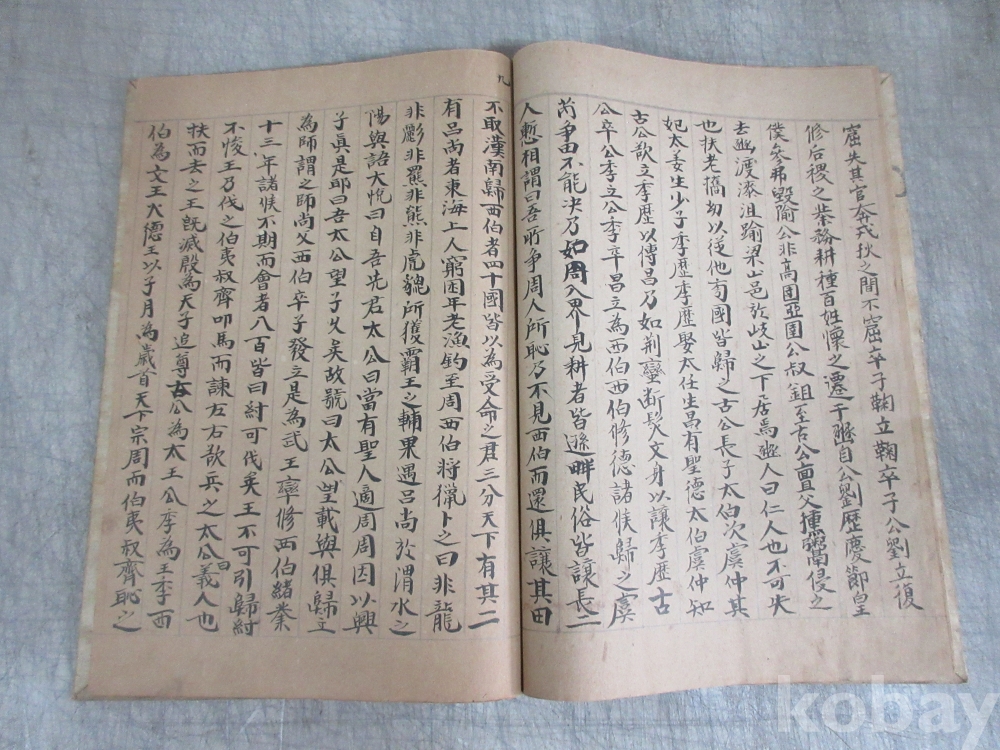 窟失其官奔戎狄之間不窟卒子鞠立鞠卒子公劉立復
修后稷之業務耕種百姓懷之遷于豳自公劉歷慶節皇
僕參弗毀隃公非高圉亞圉公叔鉏至古公亶父獯鬻侵之
去豳渡漆沮踰梁山邑於岐山之下居焉豳人曰仁人也不可失
也扶老携幼以從他旁國皆歸之古公長子太伯次虞仲其
妃太姜生少子季歷季歷娶太任生昌有聖德太伯虞仲知
古公欲立季歷以傳昌乃如荆蠻断髮文身以讓季歷古
公卒公季立公季卒昌立為西伯西伯修德諸侯歸之虞
芮爭田不能決乃如周入界見耕者皆遜畔民俗皆讓長二
人慙相謂曰吾所爭周人所恥乃不見西伯而還俱讓其田
九
不取漢南歸西伯者四十國皆以為受命之君三分天下有其二
有呂尚者東海上人窮困年老漁釣至周西伯將獵卜之曰非龍
非彲非羆非熊非虎貔所獲霸王之輔果遇呂尚於渭水之
陽與語大悅曰自吾先君太公曰當有聖人適周周因以興
子眞是耶吾太公望子久矣故號曰太公望載與俱歸立
為師謂之師尚父西伯卒子發立是為武王率修西伯緒業
十三年諸侯不期而會者八百皆曰紂可伐矣王不可引歸紂
不悛王乃伐之伯夷叔齊叩馬而諫左右欲兵之太公曰義人也
扶而去之王旣滅殷為天子追尊古公為太王公季為王季西
伯為文王大德王以子月為歲首天下宗周而伯夷叔齊恥之
kobay